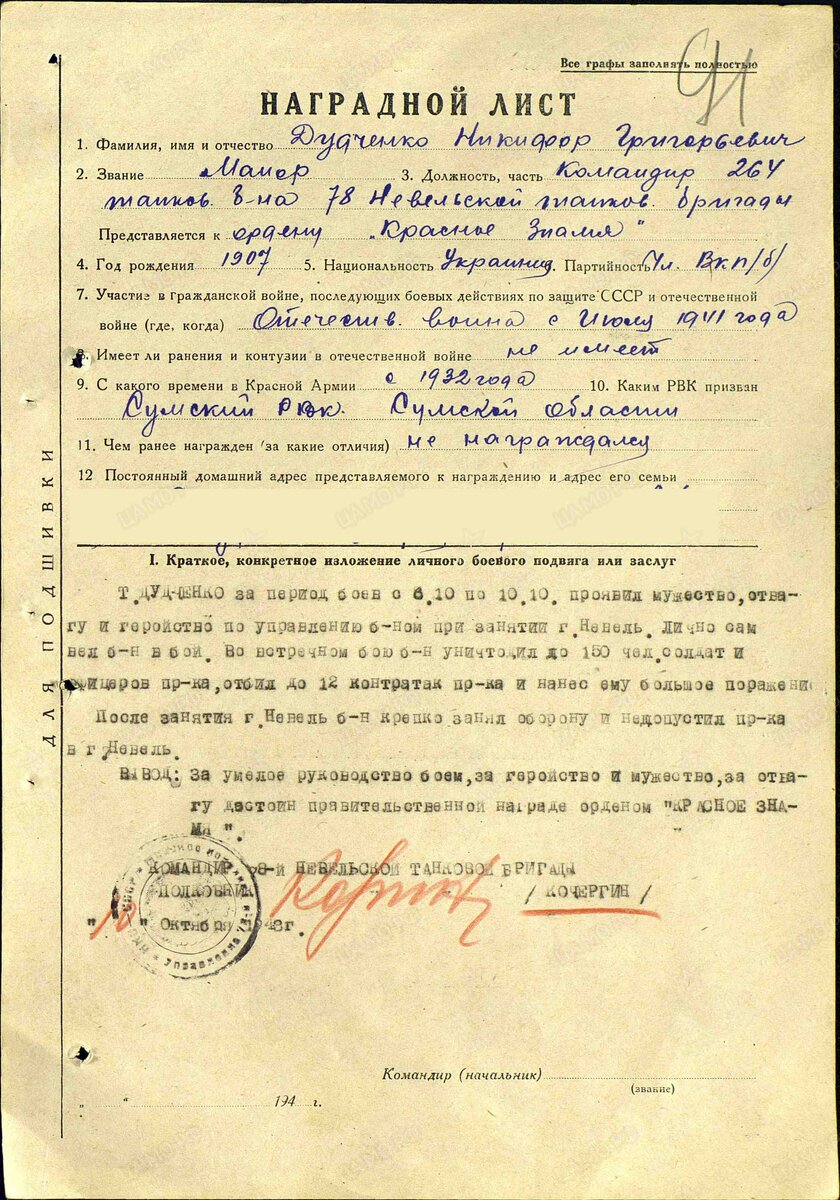 Все графы заполнять полностью
91
НАГРАДНОЙ ЛИСТ
1. Фамилия, имя и отчество Дудченко Никифор Григорьевич
2. Звание Маиор 3. Должность, часть Командир 264
танков. б-на 78 Невельской танков. бригады
Представляется к ордену „Красное Знамя"
4. Год рождения 1907 5. Национальность Украинец 6. Партийность Чл. ВКП/б/
7. Участие в гражданской войне, последующих боевых действиях по защите СССР и отечественной
войне (где, когда) Отечествв. воина с Июля 1941 года
8. Имеет ли ранения и контузии в отечественной войне не имеет
9. С какого времени в Красной Армии с 1932 года 10. Каким РВК призван
Сумский РВК. Сумской области
11. Чем ранее награжден (за какие отличия) не награждался
12 Постоянный домашний адрес представляемого к награждению и адрес его семьи
I. Краткое, конкретное изложение личного боевого подвига или заслуг
Т.ДУДЧЕНКО за период боев с 6.10 по 10.10. проявил мужество,отва-
гу и геройство по управлению б-ном при занятии г.Невель. Лично сам
вел б-н в бой. Во встречном бою б-н уничтожил до 150 чел.солдат и
офицеров пр-ка,отбил до 12 контратак пр-ка и нанес ему большое поражени
После занятия г.Невель б-н крепко занял оборону и недопустил пр-ка
в г.Невель.
ВЫВОД: За умелое руководство боем,за геройство и мужество,за отва-
гу достоин правительственной награде орденом "КРАСНОЕ ЗНА-
МЯ".
КОМАНДИР 78-й НЕВЕЛЬСКОЙ ТАНКОВОЙ БРИГАДЫ
ПОЛКОВНИК /КОЧЕРГИН/
" " Октября 1943г.
Командир (начальник)
(звание)
„ " 194 г.
ДЛЯ ПОДШИВКИ